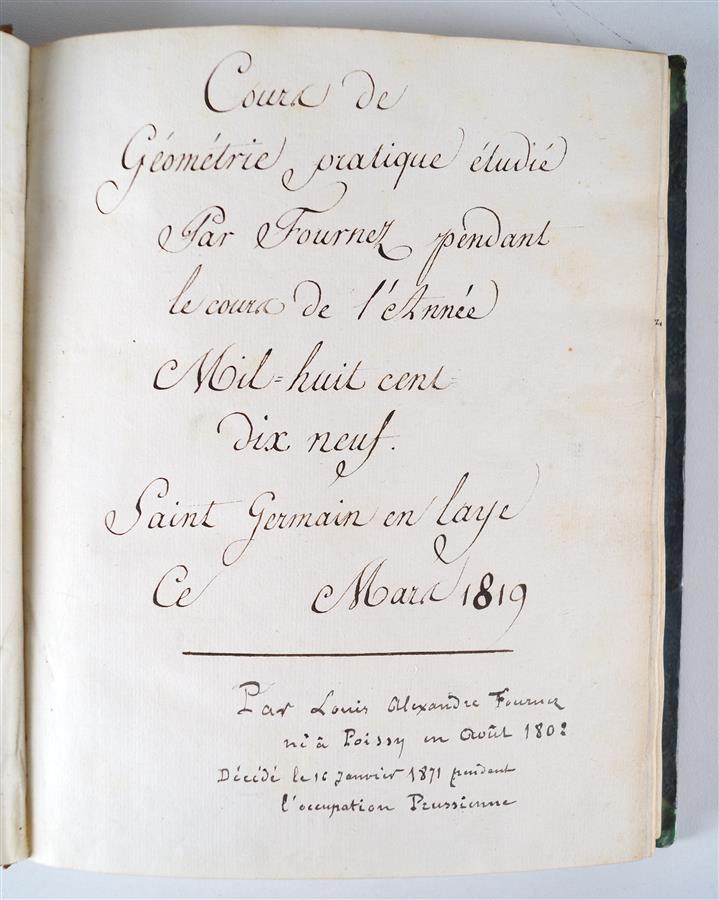 Cours de
Géométrie pratique étudié
Par Fournez pendant
le cours de l'Année
Mil=huit cent=
dix neuf.
Saint Germain en laye
Ce Mars 1819
Par Louis Alexandre Fournez
né à Poissy en Août 1802
Décédé le 16 Janvier 1871 pendant
l'occupation Prussienne